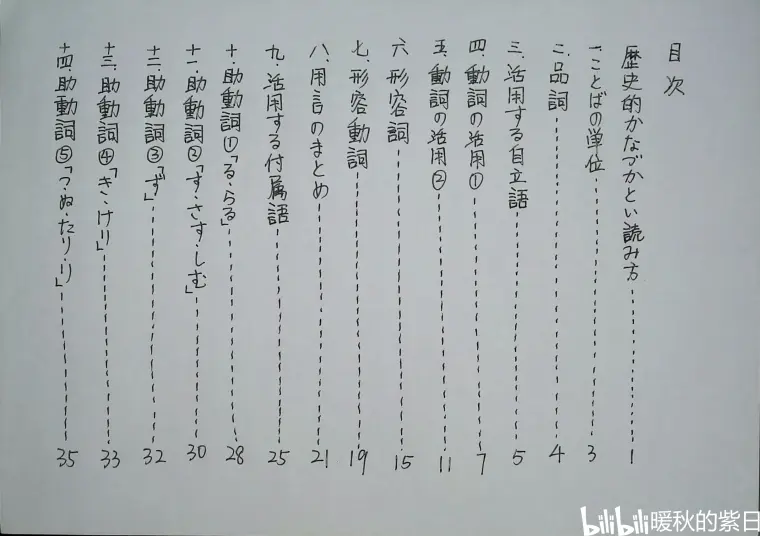 目次
歴史的かなづかとい読み方 1
一.ことばの単位 3
二.品詞 4
三.活用する自立語 5
四.動詞の活用① 7
五.動詞の活用② 11
六.形容詞 15
七.形容動詞 19
八.用言のまとめ 21
九.活用する付属語 25
十.助動詞①「る・らる」 28
十一.助動詞②「す・さす・しむ」 30
十二.助動詞③「ず」 32
十三.助動詞④「き・けり」 33
十四.助動詞⑤「つ・ぬ・たり・り」 35
bilibili 暖秋的紫日